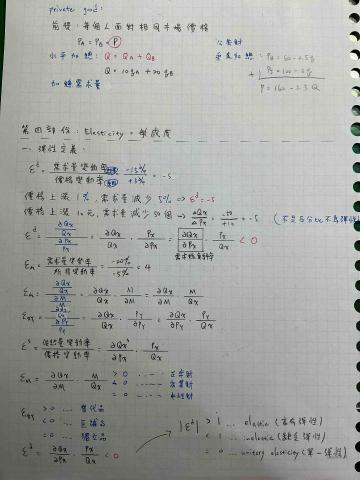 private good:
前提：每個人面對相同市場價格
P_A = P_B = P
公共財
水平加總：Q = Q_A + Q_B
垂直加總：P_A = 60 - 0.5q
Q = 10q_A + 20q_B
P_B = 100 - 2q
加總需求量
P = 160 - 2.5Q
第四部份：Elasticity = 敏感度
一、彈性定義：
ε^d = 需求量變動率 / 價格變動率 = -15% / +3% = -5
價格上漲 1%，需求量減少 5% ⇒ ε^d = -5
價格上漲 10元，需求量減少 50個 ⇒ ΔQx/ΔPx = -50/+10 = -5 (不是百分比不為彈性)
ε^d = (∂Qx/Qx)/(∂Px/Px) = ∂Qx/Qx · Px/∂Px = ∂Qx/∂Px · Px/Qx < 0
ε_M = 需求量變動率 / 所得變動率 = -20% / -5% = 4
ε_M = (∂Qx/Qx)/(∂M/M) = ∂Qx/Qx · M/∂M = ∂Qx/∂M · M/Qx
ε_xy = (∂Qx/Qx)/(∂Py/Py) = ∂Qx/Qx · Py/∂Py = ∂Qx/∂Py · Py/Qx
ε^s = 供給量變動率 / 價格變動率 = ∂Qx^s/∂Px · Px/Qx^s
ε_M = ∂Qx/∂M · M/Qx > 0 ---- 正常財
< 0 ---- 劣等財
= 0 ---- 中性財
ε_xy > 0 ... 替代品
< 0 ... 互補品
= 0 ... 獨立品
ε^d = ∂Qx/∂Px · Px/Qx < 0
|ε^d| > 1 ... elastic (富有彈性)
< 1 ... inelastic (缺乏彈性)
= 0 ... unitary elasticity (單一彈性)